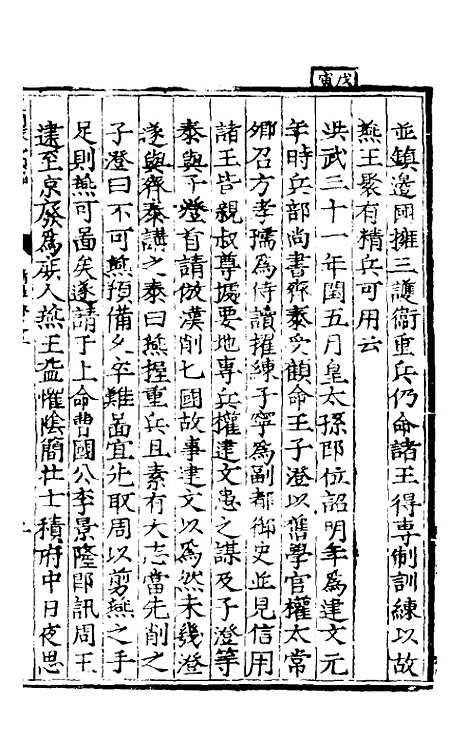 戊寅
並鎮邊圉擁三護衞重兵仍命諸王得專制訓練以故
燕王最有精兵可用云
洪武三十一年閏五月皇太孫卽位詔明年爲建文元
年時兵部尚書齊泰受顧命王子澄以舊學官權太常
卿召方孝孺爲侍讀擢練子寧爲副都御史並見信用
諸王皆親叔尊據要地專兵權建文患之謀及子澄等
泰與子澄首請倣漢削七國故事建文以爲然未幾澄
遂與齊泰講之泰曰燕握重兵且素有大志當先削之
子澄曰不可燕預備久卒難啚宜先取周以剪燕之手
足則燕可啚矣遂請于上命曹國公李景隆卽訊周王
逮至京廢爲庶人燕王益懼陰簡壯士積府中日夜思